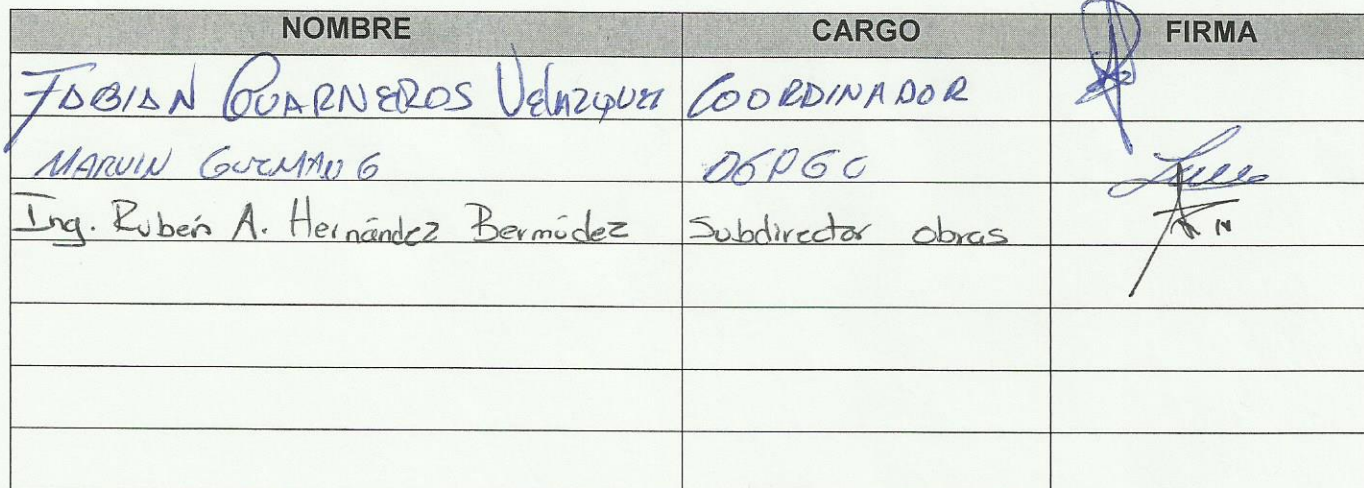 NOMBRE CARGO FIRMA
FABIAN GUARNEROS VELAZQUEZ COORDINADOR
MARVIN GUZMAN G
Ing. Rubén A. Hernández Bermúdez Subdirector obras